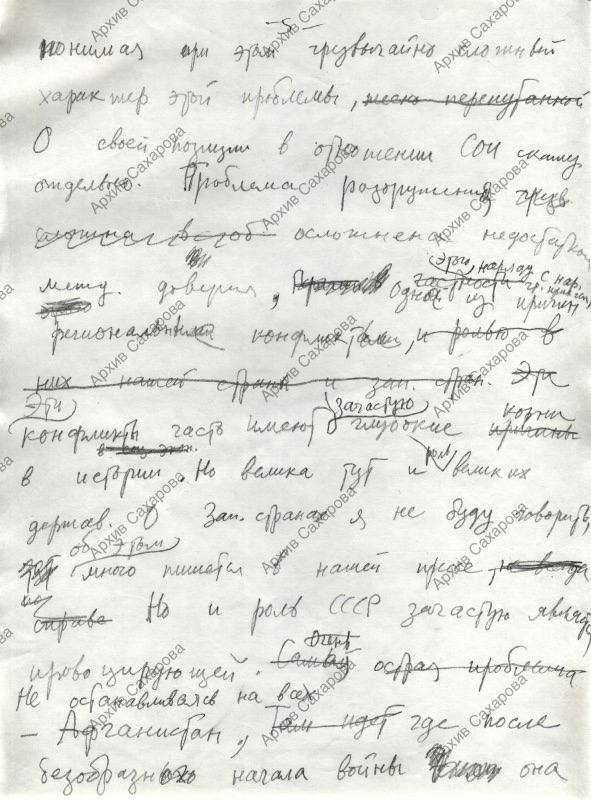 - 5 -
понимая при этом чрезвычайно сложный
характер этой проблемы, перепутанной
О своей позиции в отношении СОИ скажу
отдельно. Проблема разоружения чрезв.
осложнена недостатком
межд. доверия, Это, наряду с нар.
одной из причин
региональными конфликтами, и ролью в
них нашей страны и зап. стран. Эти
Эти зачастую корни
конфликты часть имеют глубокие причины
в истории. Но велика тут и роль великих
держав. О зап. странах я не буду говорить,
об этом
много пишется в нашей прессе, не всегда
Но и роль СССР зачастую является
провоцирующей. острая проблема
Не останавливаясь на всех
– Афганистан, Там идет где после
безобразного начала войны она
Архив Сахарова